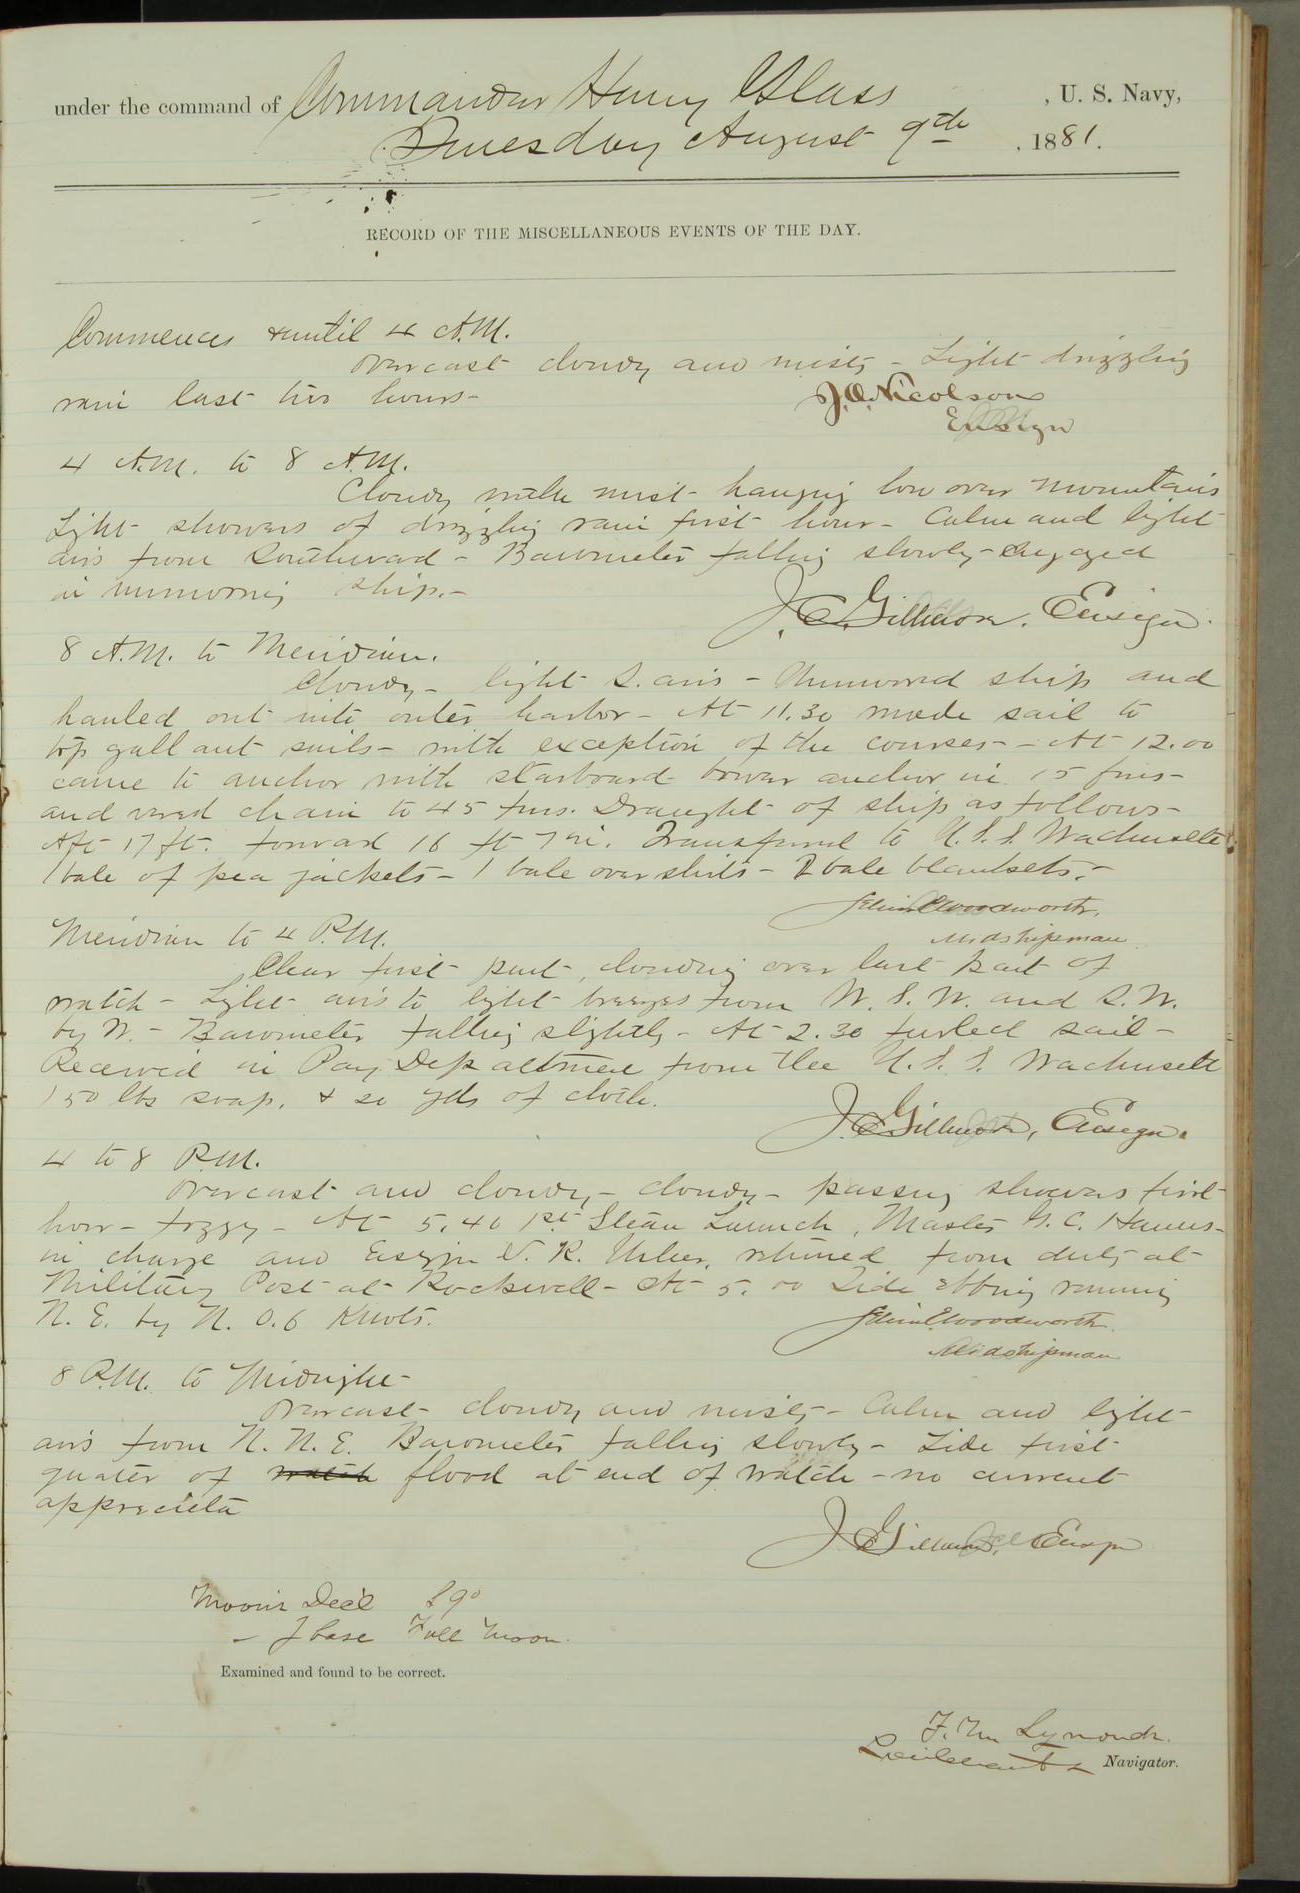 under the command of Commander Henry Glass, U. S. Navy,
Tuesday August 9th, 1881.
RECORD OF THE MISCELLANEOUS EVENTS OF THE DAY.
Commences & until 4 A.M.
Overcast cloudy and misty - Light drizzling
rain last two hours -
J.O. Nicolson
Ensign
4 A.M. to 8 A.M.
Cloudy with mist hanging low over mountains
Light showers of drizzling rain first hour - Calm and light
airs from Southward - Barometer falling slowly - Engaged
in unmooring ship. -
J. C. Gillmore. Ensign.
8 A.M. to Meridian.
Cloudy - light S. airs - Unmoored ship and
hauled out into outer harbor - At 11.30 made sail to
top gallant sails - with exception of the courses - At 12.00
came to anchor with starboard bower anchor in 15 fms -
and veered chain to 45 fms. Draught of ship as follows -
Aft 17 ft. forward 16 ft 7 in. Transferred to U.S.S. Wachusett
1 bale of pea jackets - 1 bale overshirts - 2 bale blankets. -
Selim E. Woodworth,
Midshipman
Meridian to 4 P.M.
Clear first part, clouding over last part of
watch - Light airs to light breezes from W.S.W. and S.W.
by W. - Barometer falling slightly - At 2.30 furled sail -
Received in Pay Department from the U.S.S. Wachusett
150 lbs soap, & 20 yds of cloth.
J. C. Gillmore, Ensign.
4 to 8 P.M.
Overcast and cloudy - cloudy - passing showers first
hour - foggy - At 5.40 1st Steam Launch, Master G. C. Hanus -
in charge and Ensign N. R. Usher, returned from duty at
Military Post at Rockwell - At 5.00 Tide ebbing running
N. E. by N. 0.6 Knots.
Selim E. Woodworth
Midshipman
8 P.M. to Midnight
Overcast cloudy and misty - Calm and light
airs from N. N. E. Barometer falling slowly - Tide first
quarter of watch flood at end of watch - no current
J. C. Gillmore, Ensign
Moon's Dec'l S 9°
- Phase Full Moon.
Examined and found to be correct.
F. M. Symonds.
Lieutenant & Navigator.